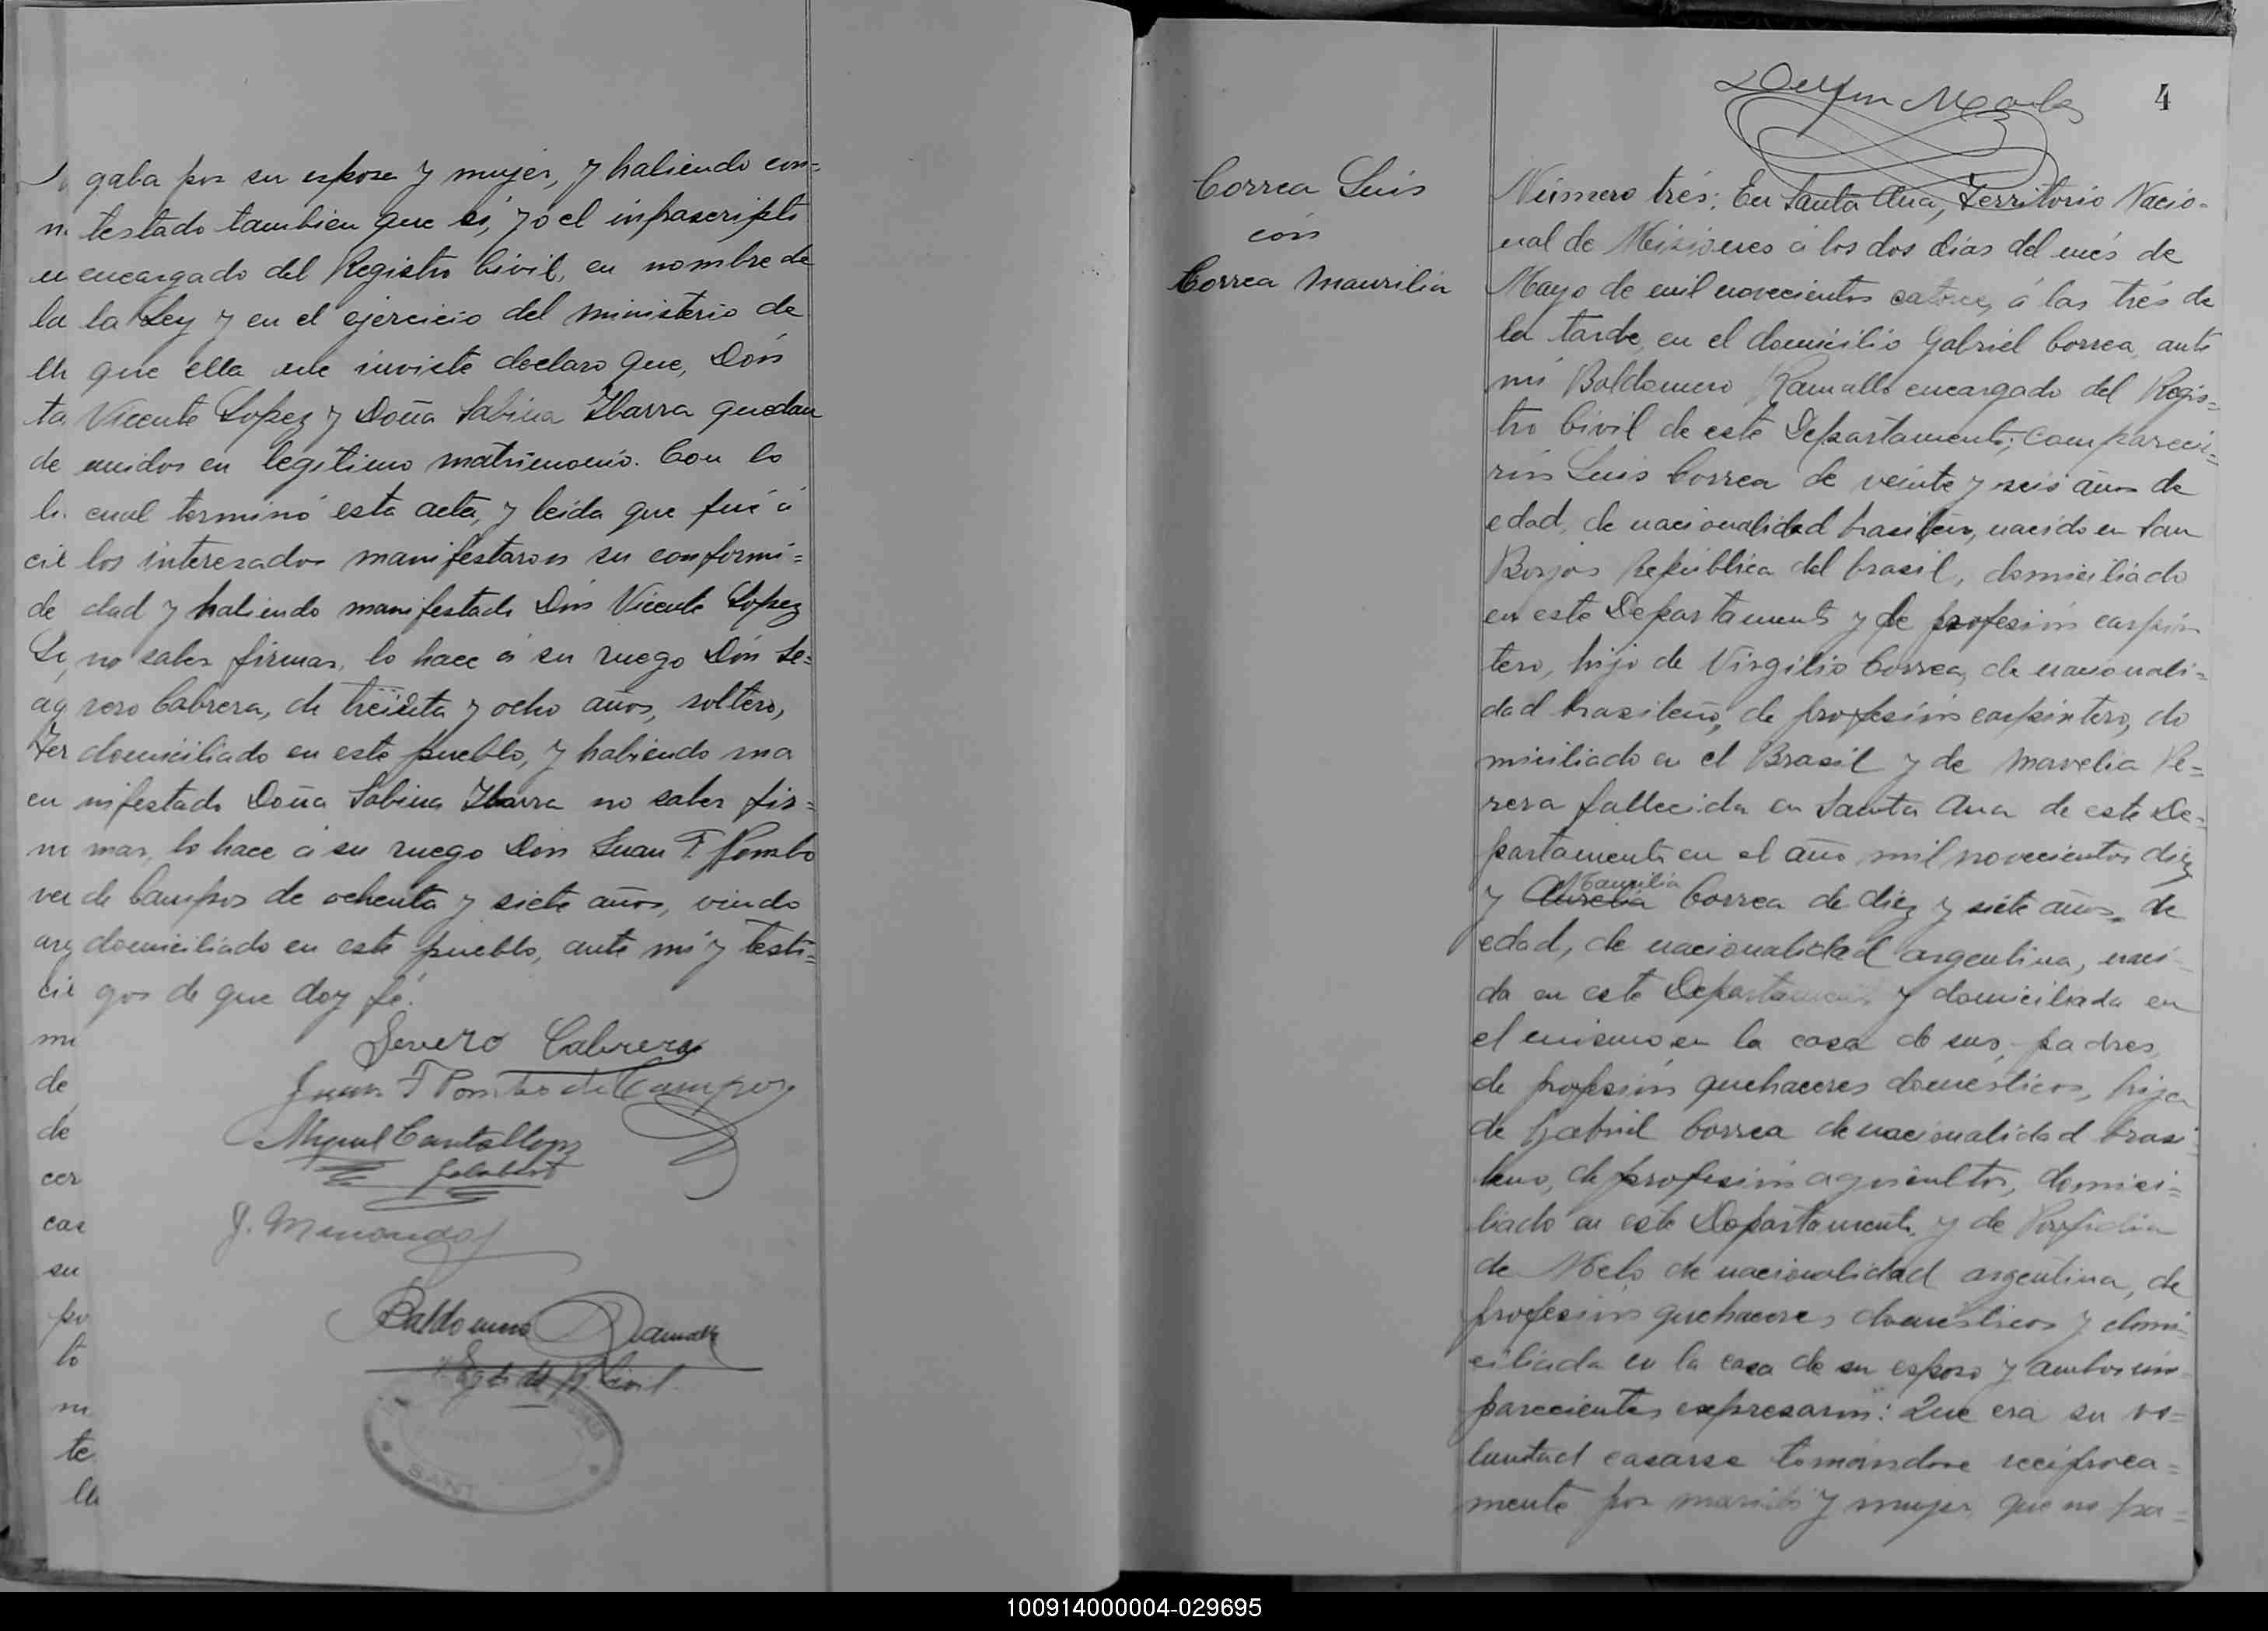 gaba por su esposa y mujer, y habiendo con=
testado tambien que si, yo el infrascripto
encargado del Registro Civil, en nombre de
la Ley y en el ejercicio del ministerio de
que ella me inviste declaro que, Dón
Vicente Lopez y Doña Sabina Ybarra quedan
unidos en legitimo matrimonio. Con lo
cual terminó esta acta, y leida que fué á
los interesados manifestaron su conformi=
dad y habiendo manifestado Dón Vicente Lopez
no saber firmar, lo hace á su ruego Dón Se=
vero Cabrera, de treinta y ocho años, soltero,
domiciliado en este pueblo, y habiendo ma
nifestado Doña Sabina Ybarra no saber fir=
mar, lo hace á su ruego Dón Juan F. Pombo
de Campos de ochenta y siete años, viudo
domiciliado en este pueblo, ante mi y testi=
gos de que doy fé.
Severo Cabrera
Juan F Pombo de Campos
Miguel Cantallops
J.
Baldomero Ramallo
Egdo del R. Civil.
SANT
4
Correa Luis
cón
Correa Maurilia
Número trés: En Santa Ana, Territorio Nacio-
nal de Misiones á los dos dias del més de
Mayo de mil novecientos catorce, á las trés de
la tarde, en el domicilio Gabriel Correa, ante
mi Baldomero Ramallo encargado del Regis=
tro Civil de este Departamento; comparecie=
rón Luis Correa de veinte y seis años de
edad, de nacionalidad brasilero, nacido en San
Borjas República del brasil, domiciliado
en este Departamento y de profesión carpin
tero, hijo de Virgilio Correa, de nacionali=
dad brasileño, de profesión carpintero, do
miciliado en el Brasil y de Marvelia Pe=
rera fallecida en Santa Ana de este De=
partamento en el año mil novecientos diez
Maurilia
y Aurelia Correa de diez y siete años de
edad, de nacionalidad argentina, naci-
da en este Departamento y domiciliada en
el mismo en la casa de sus, padres,
de profesión quehaceres domésticos, hija
de Gabriel Correa de nacionalidad brasi
leno, de profesión agricultor, domici=
liado en este Departamento, y de
de Melo de nacionalidad argentina, de
profesión quehaceres domésticos y domi=
ciliada en la casa de su esposo y ambos com-
parecientes expresaron: Que era su vo=
luntad casarse tomandose reciproca=
mente por marido y mujer, que no pa=
100914000004-029695